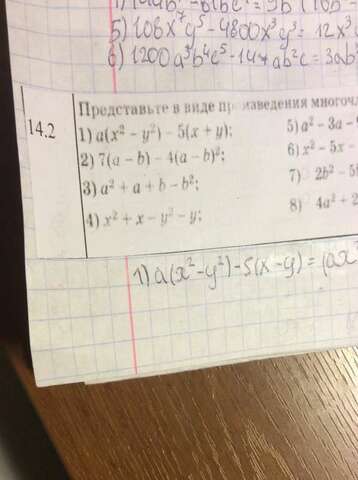 5) 108x⁷y⁵ - 4800x³y³ = 12x³
6) 1200a³b⁴c⁵ - 147ab²c = 3ab
14.2
Представьте в виде произведения многочл
1) a(x² − y²) − 5(x + y);
2) 7(a − b) − 4(a − b)²;
3) a² + a + b − b²;
4) x² + x − y² − y;
5) a² − 3a −
6) x² − 5x −
7) 2b² − 5
8) 4a² + 2
1) a(x² - y²) - 5(x - y) = (ax